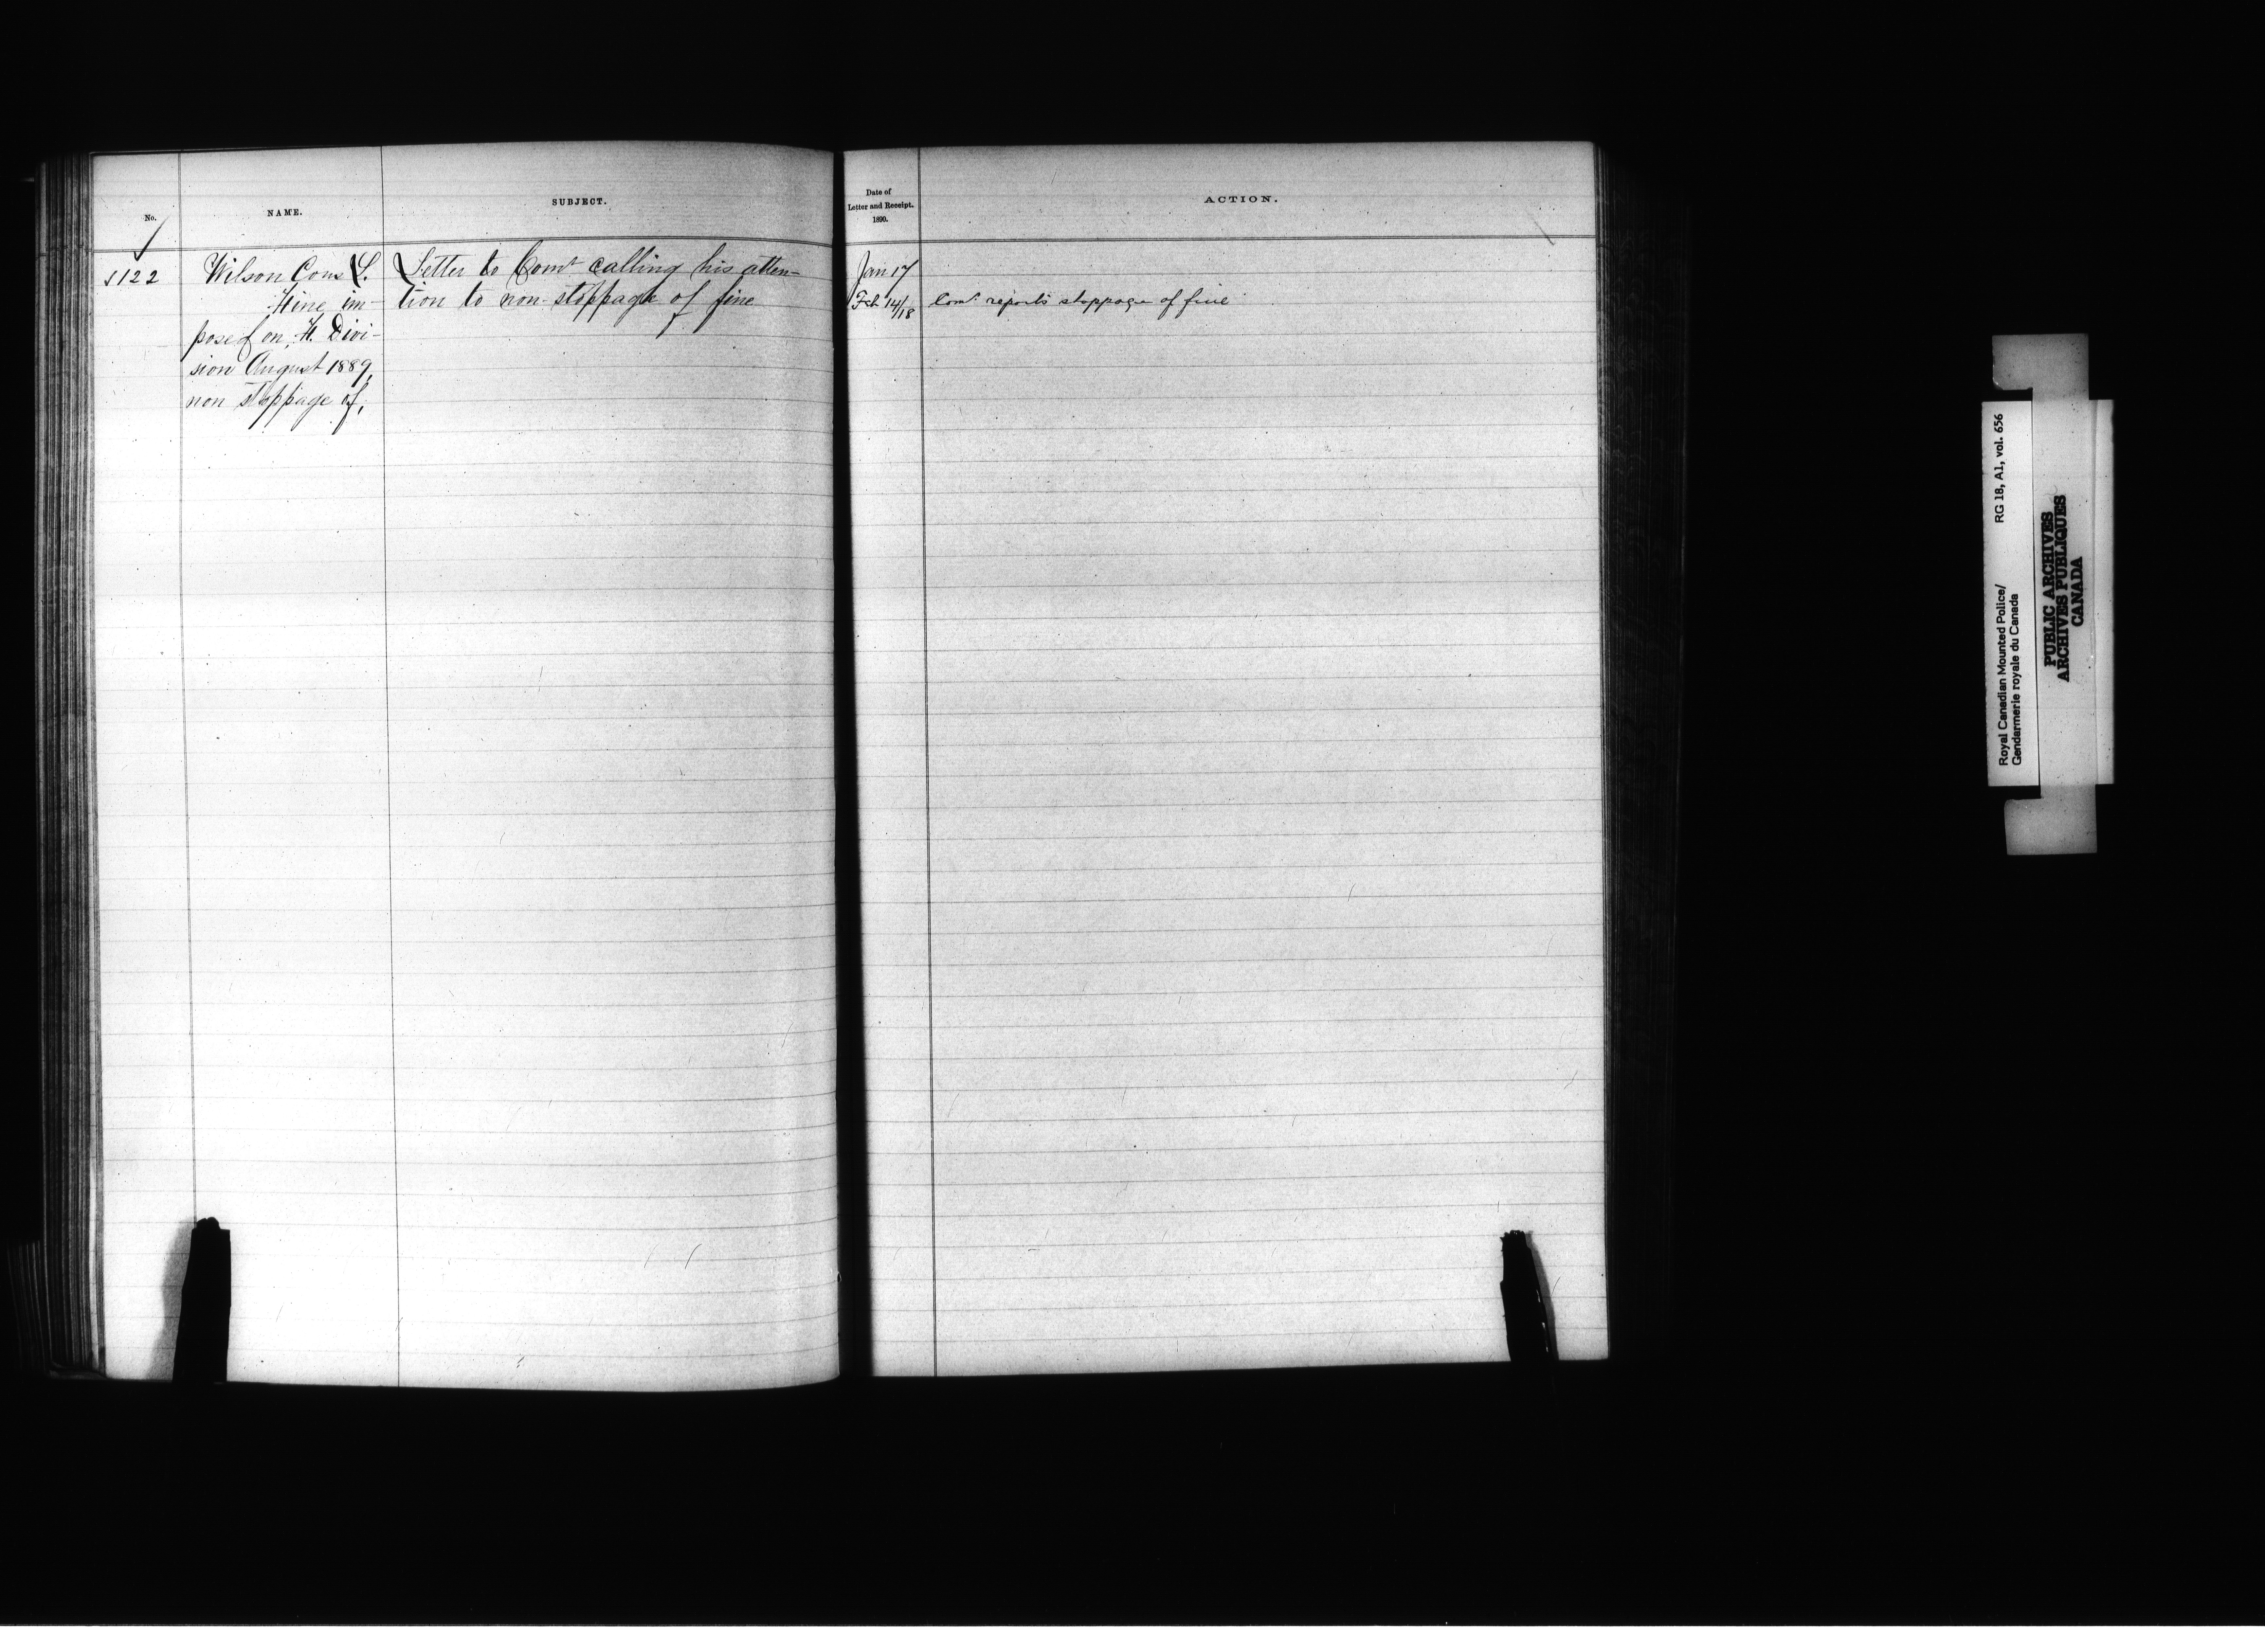 No.
NAME.
SUBJECT.
Date of
Letter and Receipt.
1890.
ACTION.
122
Wilson Cons
Fine im-
posed on, H. Divi-
sion August 1889,
non stoppage of,
Letter to Comr calling his atten-
tion to non-stoppage of fine
Jan 17
Feb 14/18
Comr reports stoppage of fine
Royal Canadian Mounted Police/
Gendarmerie royale du Canada
RG 18, A1, vol. 656
PUBLIC ARCHIVES
ARCHIVES PUBLIQUES
CANADA